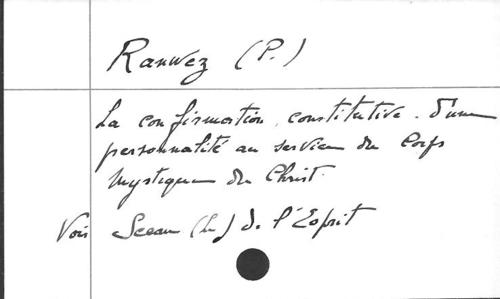 Ranwez (P.)
La confirmation, constitutive d'une
personnalité au service du Corps
Mystique du Christ.
Voir Sceau (Le) de l'Esprit